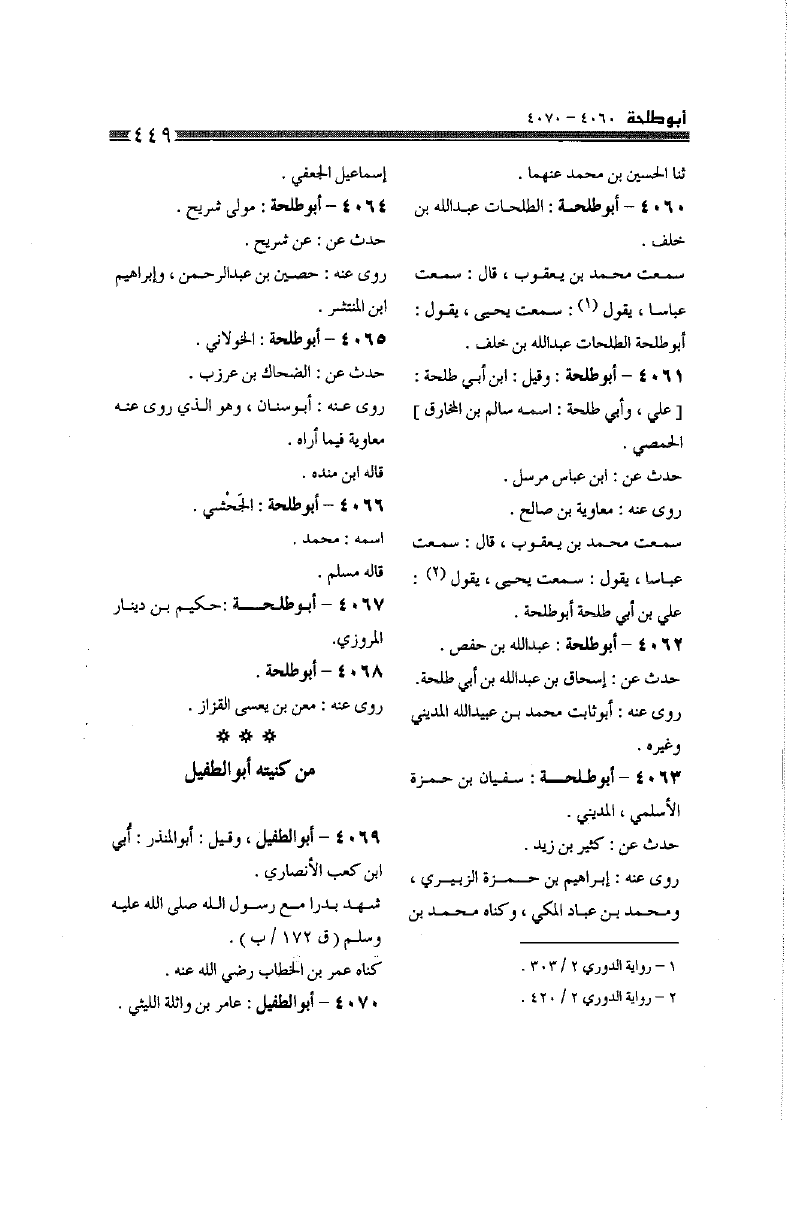 أبوطلحة ٤٠٦٠ – ٤٠٧٠
٤٤٩
ثنا الحسين بن محمد عنهما .
٤٠٦٠ – أبوطلحة : الطلحات عبدالله بن
خلف .
سمعت محمد بن يعقوب ، قال : سمعت
عباسا ، يقول (١) : سمعت يحيى ، يقول :
أبوطلحة الطلحات عبدالله بن خلف .
٤٠٦١ – أبوطلحة : وقيل : ابن أبي طلحة :
[ علي ، وأبي طلحة : اسمه سالم بن المخارق ]
الحمصي .
حدث عن : ابن عباس مرسل .
روى عنه : معاوية بن صالح .
سمعت محمد بن يعقوب ، قال : سمعت
عباسا ، يقول : سمعت يحيى ، يقول (٢) :
علي بن أبي طلحة أبوطلحة .
٤٠٦٢ – أبوطلحة : عبدالله بن حفص .
حدث عن : إسحاق بن عبدالله بن أبي طلحة.
روى عنه : أبوثابت محمد بن عبيدالله المديني
وغيره .
٤٠٦٣ – أبوطلحة : سفيان بن حمزة
الأسلمي ، المديني .
حدث عن : كثير بن زيد .
روى عنه : إبراهيم بن حمزة الزبيري ،
ومحمد بن عباد المكي ، وكناه محمد بن
١ – رواية الدوري ٢ / ٣٠٣ .
٢ – رواية الدوري ٢ / ٤٢٠ .
إسماعيل الجعفي .
٤٠٦٤ – أبوطلحة : مولى شريح .
حدث عن : عن شريح .
روى عنه : حصين بن عبدالرحمن ، وإبراهيم
ابن المنتشر .
٤٠٦٥ – أبوطلحة : الخولاني .
حدث عن : الضحاك بن عرزب .
روى عنه : أبوسنان ، وهو الذي روى عنه
معاوية فيما أراه .
قاله ابن منده .
٤٠٦٦ – أبوطلحة : الجَحْشي .
اسمه : محمد .
قاله مسلم .
٤٠٦٧ – أبوطلحة :حكيم بن دينار
المروزي.
٤٠٦٨ – أبوطلحة .
روى عنه : معن بن يعسى القزاز .
* * *
من كنيته أبوالطفيل
٤٠٦٩ – أبوالطفيل ، وقيل : أبوالمنذر : أُبي
ابن كعب الأنصاري .
شهد بدرا مع رسول الله صلى الله عليه
وسلم ( ق ١٧٢ / ب ) .
كناه عمر بن الخطاب رضي الله عنه .
٤٠٧٠ – أبوالطفيل : عامر بن واثلة الليثي .